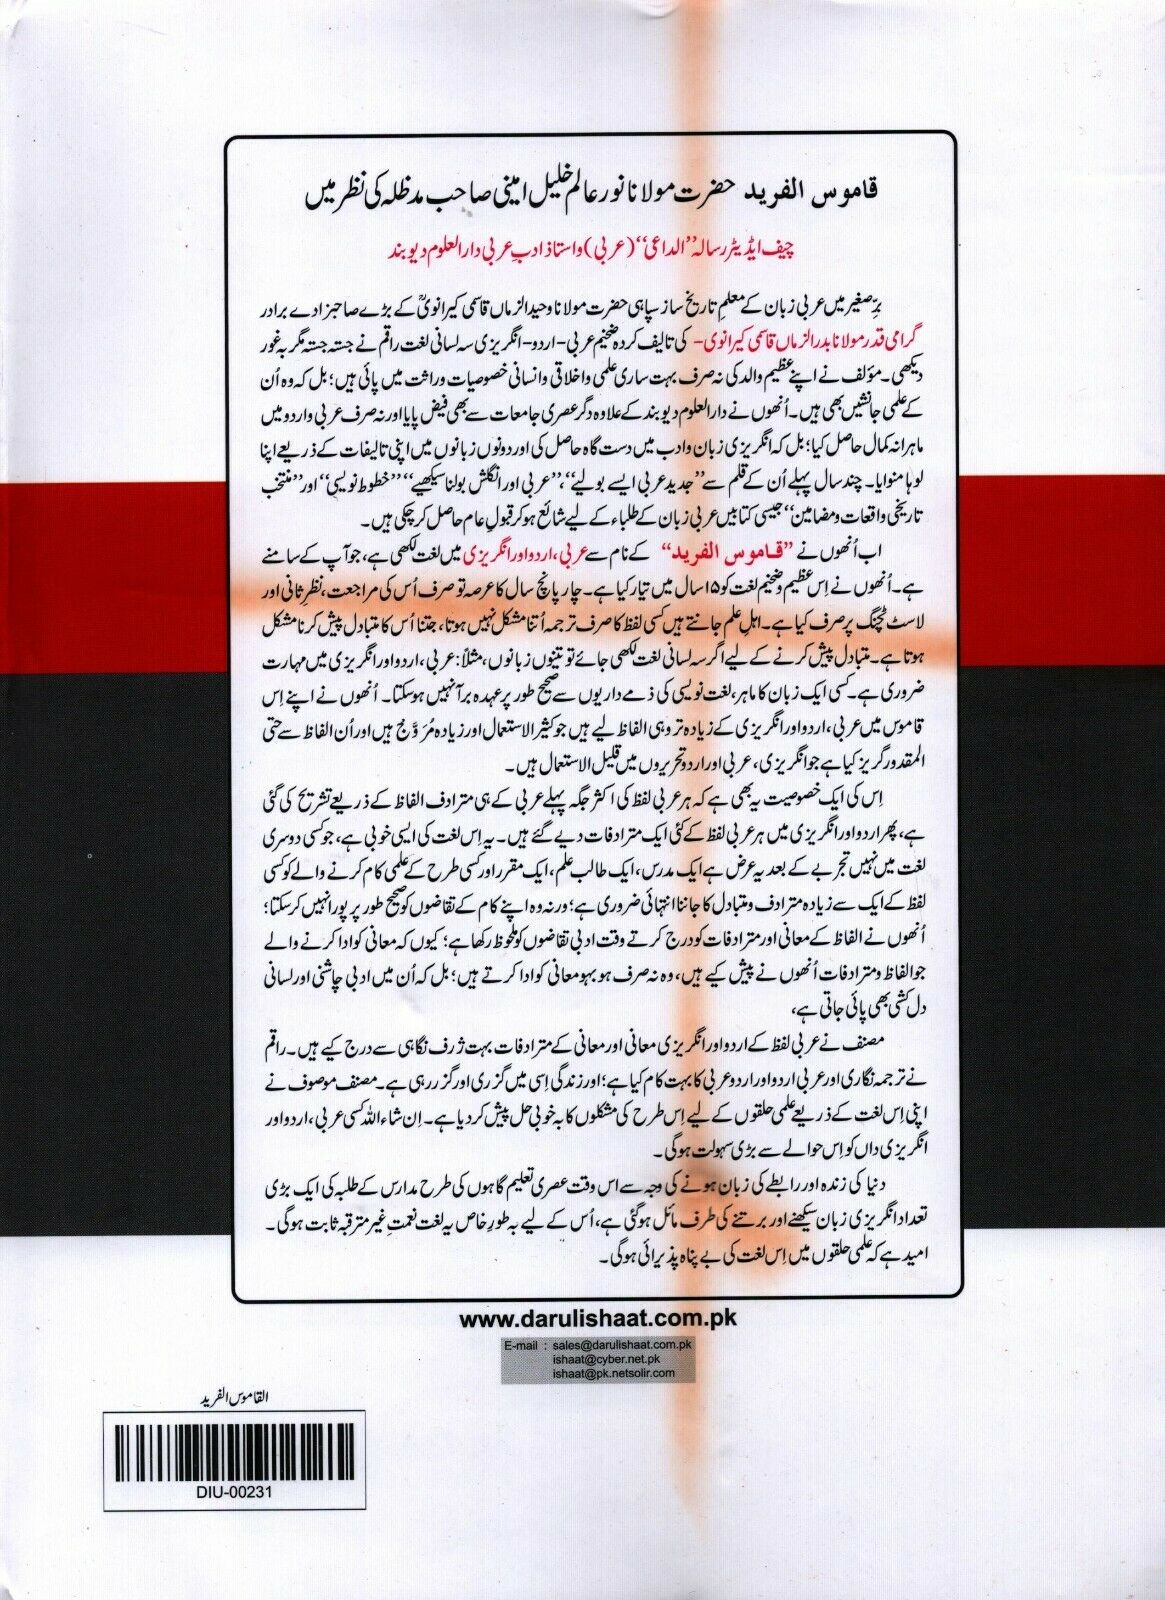 قاموس الفرید حضرت مولانا نور عالم خلیل امینی صاحب مدظلہ کی نظر میں
چیف ایڈیٹر رسالہ ”الداعی“ (عربی) و استاذ ادبِ عربی دارالعلوم دیوبند
برِّصغیر میں عربی زبان کے معلم تاریخ ساز سپاہی حضرت مولانا وحید الزماں قاسمی کیرانویؒ کے بڑے صاحبزادے برادر
گرامی قدر مولانا بدر الزماں قاسمی کیرانوی- کی تالیف کردہ ضخیم عربی-اردو-انگریزی سہ لسانی لغت راقم نے جستہ جستہ مگر بہ غور
دیکھی۔ مؤلف نے اپنے عظیم والد کی نہ صرف بہت ساری علمی و اخلاقی و انسانی خصوصیات وراثت میں پائی ہیں؛ بل کہ وہ اُن
کے علمی جانشیں بھی ہیں۔ اُنھوں نے دارالعلوم دیوبند کے علاوہ دگر عصری جامعات سے بھی فیض پایا اور نہ صرف عربی و اردو میں
ماہرانہ کمال حاصل کیا؛ بل کہ انگریزی زبان و ادب میں دست گاہ حاصل کی اور دونوں زبانوں میں اپنی تالیفات کے ذریعے اپنا
لوہا منوایا۔ چند سال پہلے اُن کے قلم سے ”جدید عربی ایسے بولیے“، ”عربی اور انگلش بولنا سیکھیے“ ”خطوط نویسی“ اور ”منتخب
تاریخی واقعات و مضامین“ جیسی کتابیں عربی زبان کے طلباء کے لیے شائع ہو کر قبولِ عام حاصل کر چکی ہیں۔
اب اُنھوں نے ”قاموس الفرید“ کے نام سے عربی، اردو اور انگریزی میں لغت لکھی ہے، جو آپ کے سامنے
ہے۔ اُنھوں نے اِس عظیم و ضخیم لغت کو ۱۵ سال میں تیار کیا ہے۔ چار پانچ سال کا عرصہ تو صرف اُس کی مراجعت، نظرِ ثانی اور
لاسٹ ٹچنگ پر صرف کیا ہے۔ اہلِ علم جانتے ہیں کسی لفظ کا صرف ترجمہ اُتنا مشکل نہیں ہوتا، جتنا اُس کا متبادل پیش کرنا مشکل
ہوتا ہے۔ متبادل پیش کرنے کے لیے اگر سہ لسانی لغت لکھی جائے تو تینوں زبانوں، مثلاً: عربی، اردو اور انگریزی میں مہارت
ضروری ہے۔ کسی ایک زبان کا ماہر، لغت نویسی کی ذمے داریوں سے صحیح طور پر عہدہ برآ نہیں ہوسکتا۔ اُنھوں نے اپنے اِس
قاموس میں عربی، اردو اور انگریزی کے زیادہ تر وہی الفاظ لیے ہیں جو کثیر الاستعمال اور زیادہ مُرَوَّج ہیں اور اُن الفاظ سے حتی
المقدور گریز کیا ہے جو انگریزی، عربی اور اردو تحریروں میں قلیل الاستعمال ہیں۔
اِس کی ایک خصوصیت یہ بھی ہے کہ ہر عربی لفظ کی اکثر جگہ پہلے عربی کے ہی مترادف الفاظ کے ذریعے تشریح کی گئی
ہے، پھر اردو اور انگریزی میں ہر عربی لفظ کے کئی ایک مترادفات دیے گئے ہیں۔ یہ اِس لغت کی ایسی خوبی ہے، جو کسی دوسری
لغت میں نہیں تجربے کے بعد یہ عرض ہے ایک مدرس، ایک طالب علم، ایک مقرر اور کسی طرح کے علمی کام کرنے والے کو کسی
لفظ کے ایک سے زیادہ مترادف و متبادل کا جاننا انتہائی ضروری ہے؛ ورنہ وہ اپنے کام کے تقاضوں کو صحیح طور پر پورا نہیں کرسکتا؛
اُنھوں نے الفاظ کے معانی اور مترادفات کو درج کرتے وقت ادبی تقاضوں کو ملحوظ رکھا ہے؛ کیوں کہ معانی کو ادا کرنے والے
جو الفاظ و مترادفات اُنھوں نے پیش کیے ہیں، وہ نہ صرف ہوبہو معانی کو ادا کرتے ہیں؛ بل کہ اُن میں ادبی چاشنی اور لسانی
دل کشی بھی پائی جاتی ہے،
مصنف نے عربی لفظ کے اردو اور انگریزی معانی اور معانی کے مترادفات بہت ژرف نگاہی سے درج کیے ہیں۔ راقم
نے ترجمہ نگاری اور عربی اردو اور اردو عربی کا بہت کام کیا ہے؛ اور زندگی اِسی میں گزری اور گزر رہی ہے۔ مصنف موصوف نے
اپنی اِس لغت کے ذریعے علمی حلقوں کے لیے اِس طرح کی مشکلوں کا بہ خوبی حل پیش کر دیا ہے۔ اِن شاء اللہ کسی عربی، اردو اور
انگریزی داں کو اِس حوالے سے بڑی سہولت ہوگی۔
دنیا کی زندہ اور رابطے کی زبان ہونے کی وجہ سے اس وقت عصری تعلیم گاہوں کی طرح مدارس کے طلبہ کی ایک بڑی
تعداد انگریزی زبان سیکھنے اور برتنے کی طرف مائل ہوگئی ہے، اُس کے لیے بہ طورِ خاص یہ لغت نعمتِ غیر مترقبہ ثابت ہوگی۔
امید ہے کہ علمی حلقوں میں اِس لغت کی بے پناہ پذیرائی ہوگی۔
www.darulishaat.com.pk
E-mail : sales@darulishaat.com.pk
ishaat@cyber.net.pk
ishaat@pk.netsolir.com
القاموس الفرید
DIU-00231